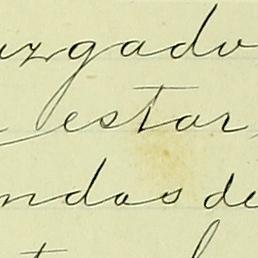 uzgado
estar
ndas de